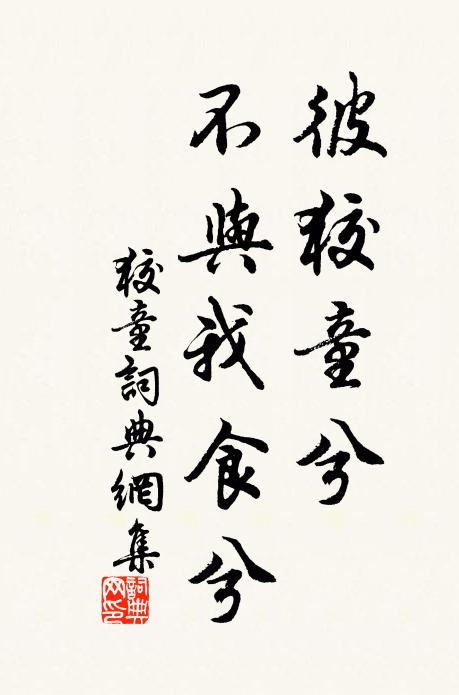 彼狡童兮
不與我食兮
狡童詞典網集
詞典
网印